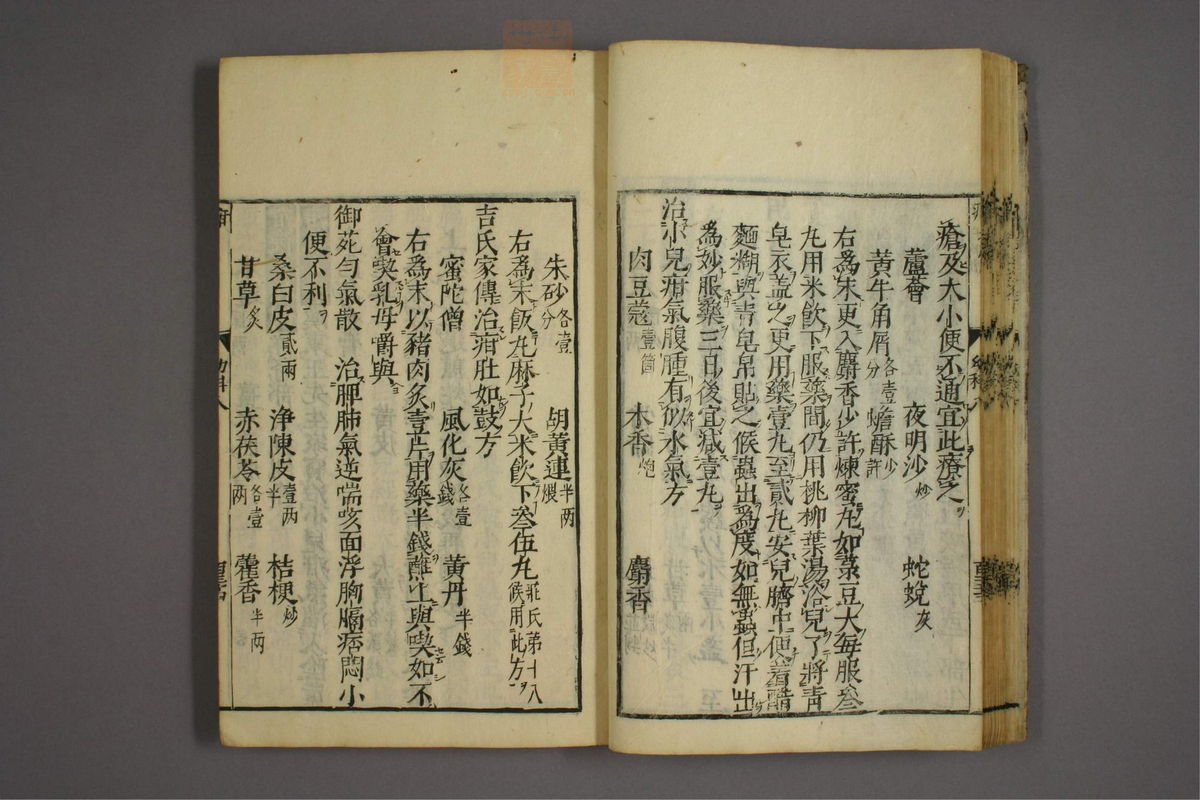 瘡及大小便不通宜此療之
蘆薈 夜明沙炒 蛇蛻灰
黃牛角屑各壹分 蟾酥少許
右為末更入麝香少許煉蜜丸如菉豆大每服叄
丸用米飲下服藥間仍用桃柳葉湯浴兒了將靑
皂衣盖之更用藥壹丸至貳丸安兒臍中便着醋
麵糊與靑皂帛貼之候蟲出為度如無蟲但汗出
為妙服藥三日後宜減壹丸
治小兒疳氣腹腫有似水氣方
肉豆蔲壹箇 木香炮 麝香
朱砂各壹分 胡黃連半两
右為末飯丸麻子大米飲下叄伍丸莊氏第十八候用此方
吉氏家傳治疳肚如鼓方
蜜陀僧 風化灰各壹錢 黃丹半錢
右為末以豬肉炙壹片用藥半錢蘸上與喫如不
會喫乳母嚼與
御苑勻氣散 治脾肺氣逆喘咳面浮胸膈痞悶小
便不利
桑白皮貳兩 淨陳皮壹两半 桔梗炒
甘草炙 赤茯苓各壹两 藿香半两